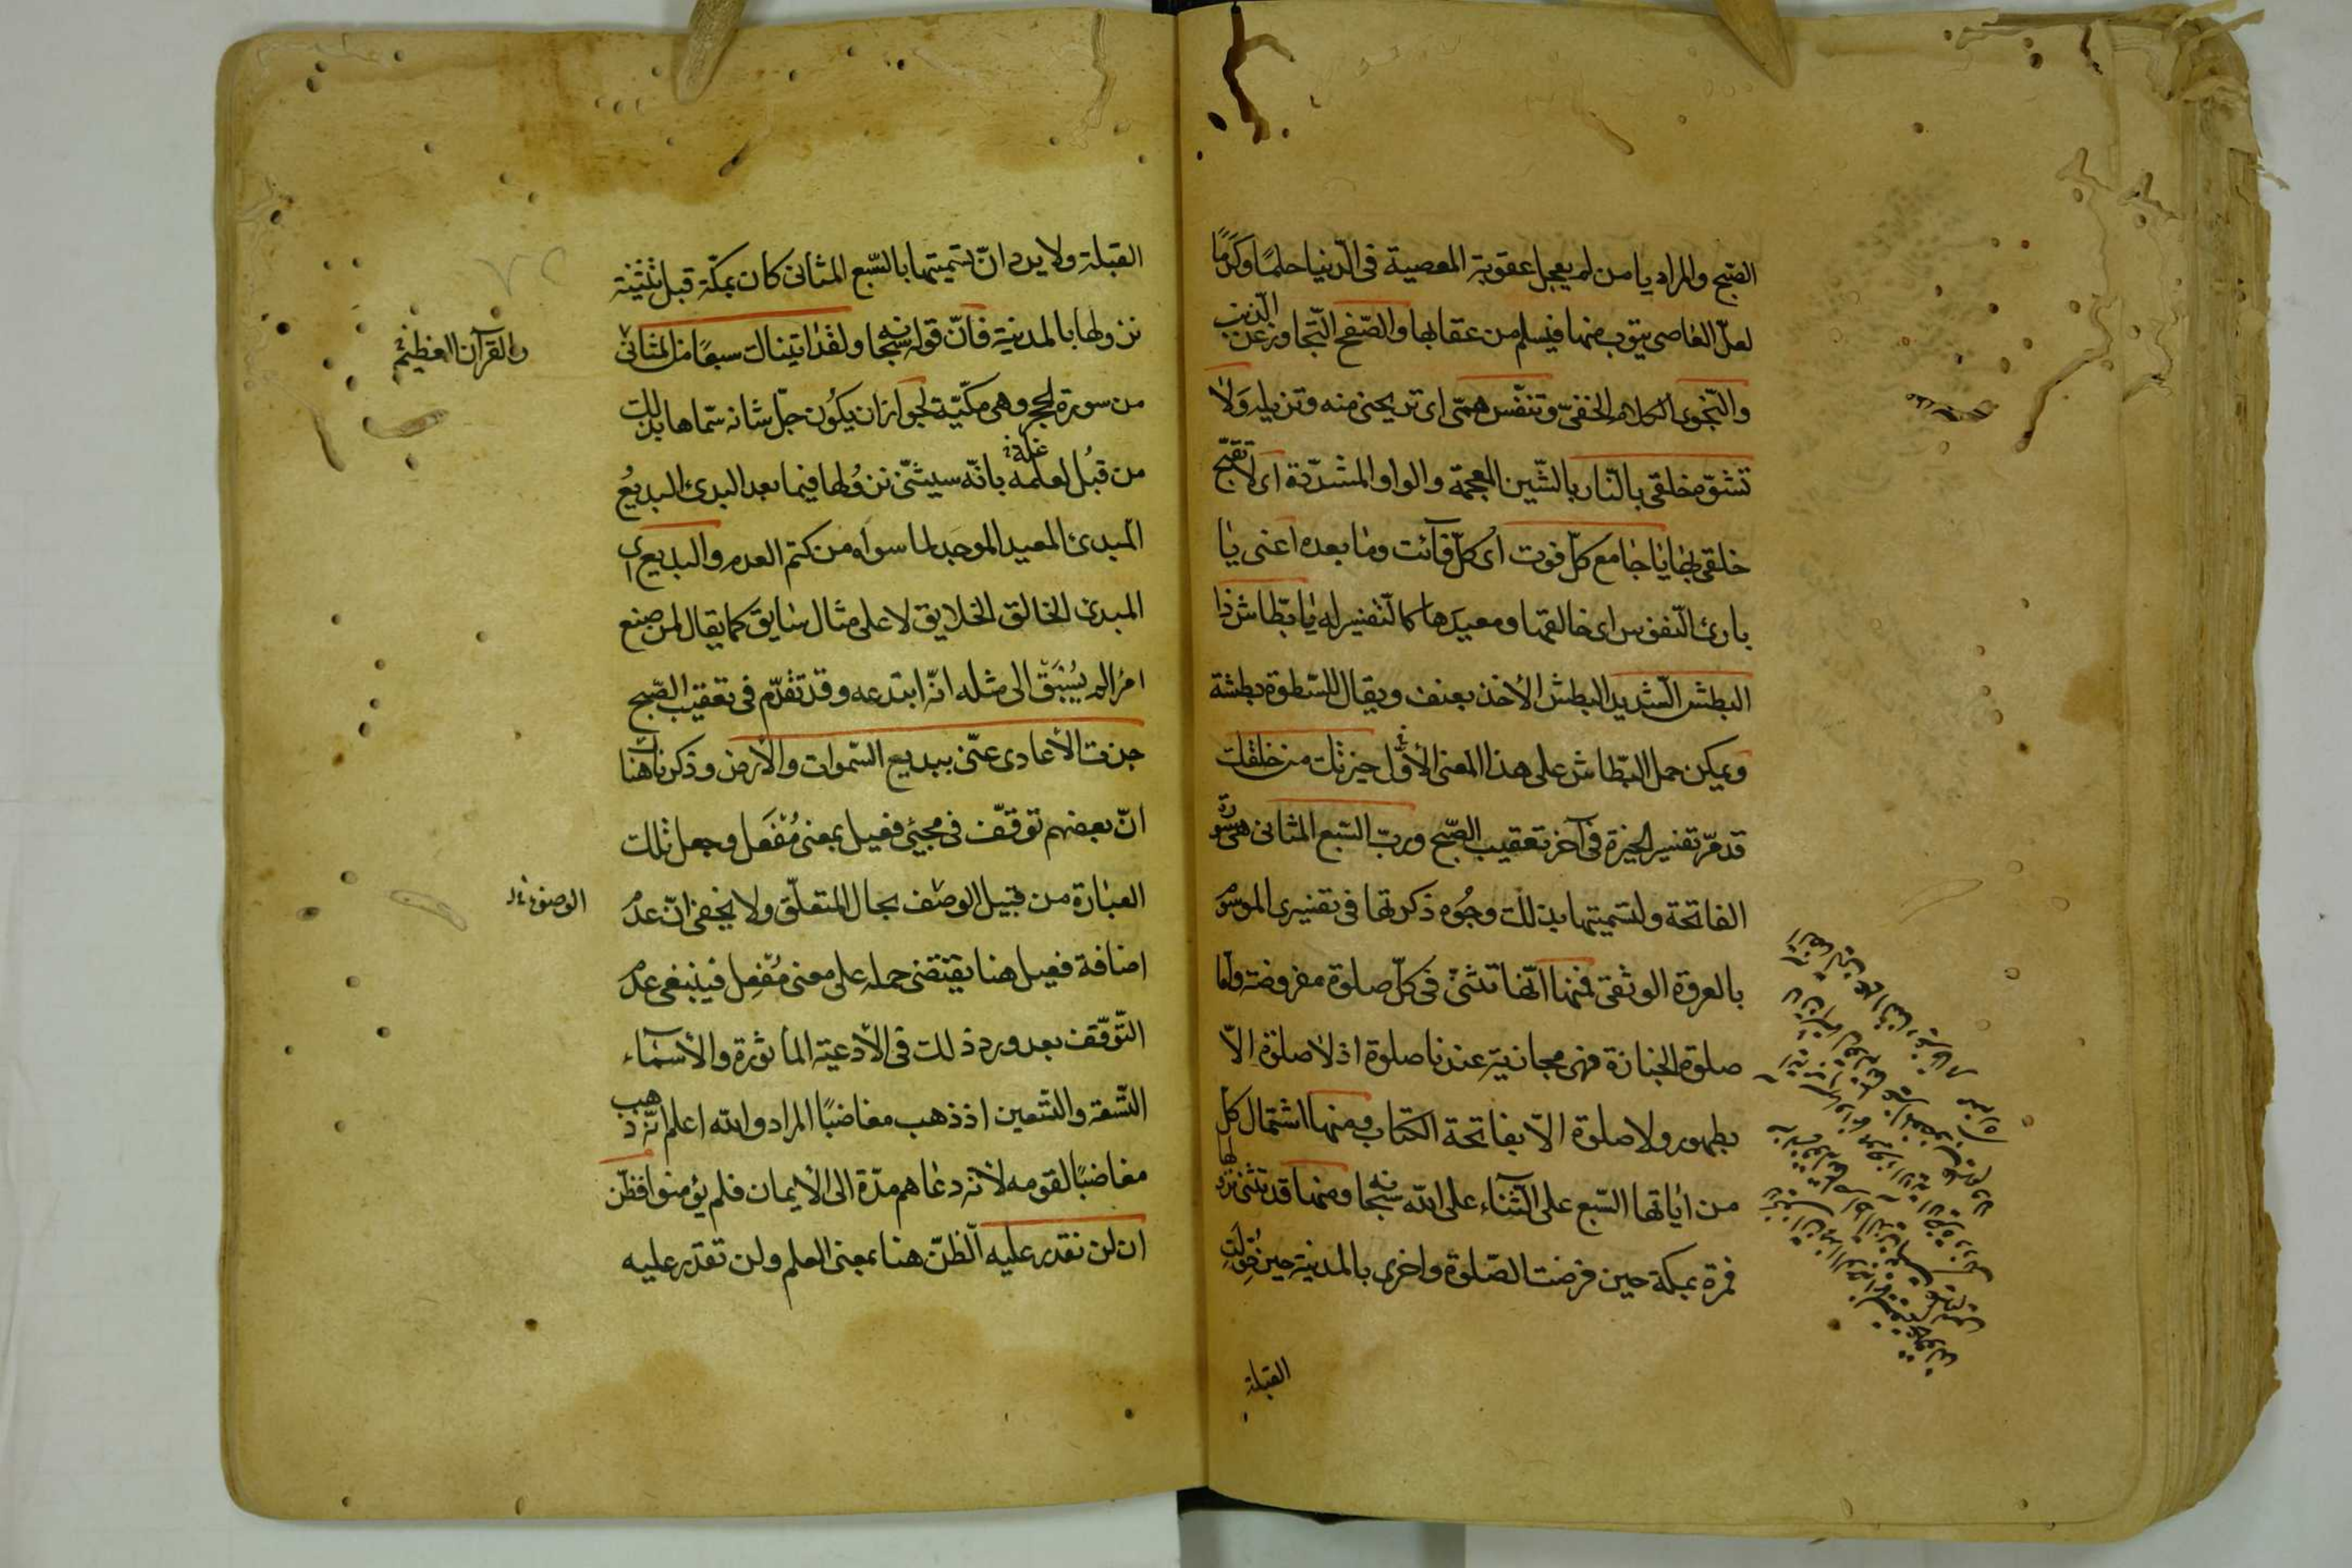 القبيح والمراد يا من لم يعجل عقوبة المعصية فى الدّنيا حلمًا وكرمًا
لعلّ العاصى يتوب منها فيسلم من عقابها والصّفح التّجاوز عن الذنب
والنّجوى الكلام الخفىّ وتنفّس همّى اى تريحنى منه وتزيله وَلا
تشوّه خلقى بالنّار بالشّين المعجمة والواو المشدّدة اى لا تقبّح
خلقى بها يا جامع كلّ فوت اى كلّ فآئت وما بعده اعنى يا
بارئ النّفوس اى خالقها ومعيدها كالتّفسير له يا بطّاش ذا
البطش الشّديد البطش الأخذ بعنف ويقال للسّطوة بطشة
ويمكن حمل البطّاش على هذا المعنى الأوّل خيرتك من خلقك
قد مرّ تفسير الخيرة فى آخر تعقيب الصّبح وربّ السّبع المثانى هى سورة
الفاتحة ولتسميتها بذلك وجُوه ذكرتها فى تفسيرى الموسوم
بالعروة الوثقى فمنها انّها تثنّى فى كلّ صلوة مفروضة وامّا
صلوة الجنازة فهى مجازيّة عندنا صلوة اذ لا صلوة الّا
بطهور ولا صلوة الّا بفاتحة الكتاب ومنها اشتمال كل
من اياتها السّبع على الثّناء على الله سبحانه ومنها قد تثنى نزولها
فمرة بمكة حين فرضت الصّلوة واخرى بالمدينة حين حُوّلت
القبلة
القبلة ولا يرد انّ تسميتها بالسّبع المثانى كان بمكّة قبل تثنية
نزولها بالمدينة فانّ قوله سبحانه ولقد اتيناك سبعًا من المثانى
والقرآن العظيم
من سورة الحجر وهى مكّيّة لجواز ان يكون جلّ شانه سمّاها بذلك
من قبُل لعلمه بانّه سيثنّى نزولها فيما بعد البدئ البديعُ
المبدئ المعيد الموجد لما سواه من كتم العدم والبديع اى
المبدئ الخالق الخلايق لا على مثال سابق كما يقال لمن صنع
امرًا لم يُسبَق الى مثله انّه ابتدعه وقد تقدّم فى تعقيب الصّبح
جزت الأعادى عنّى ببديع السّموات والأرض وذكرنا هناك
انّ بعضهم توقّف فى مجيئ فعيل بمعنى مُفعَل وجعل تلك
العبارة من قبيل الوصف بحال المتعلّق ولا يخفى انّ عدم
اضافة فعيل هنا يقتضى حمله على معنى مُفعِل فينبغى عدم
التّوقّف بعد ورود ذلك فى الأدعية المأثورة والأسماء
التّسعة والتّسعين اذ ذهب مغاضبًا المراد والله اعلم انّه ذهب
مغاضبًا لقومه لأنه دعاهم مدّة الى الأيمان فلم يؤمنوا فظنّ
ان لن نقدر عليه الظنّ هنا بمعنى العلم ولن نقدر عليه